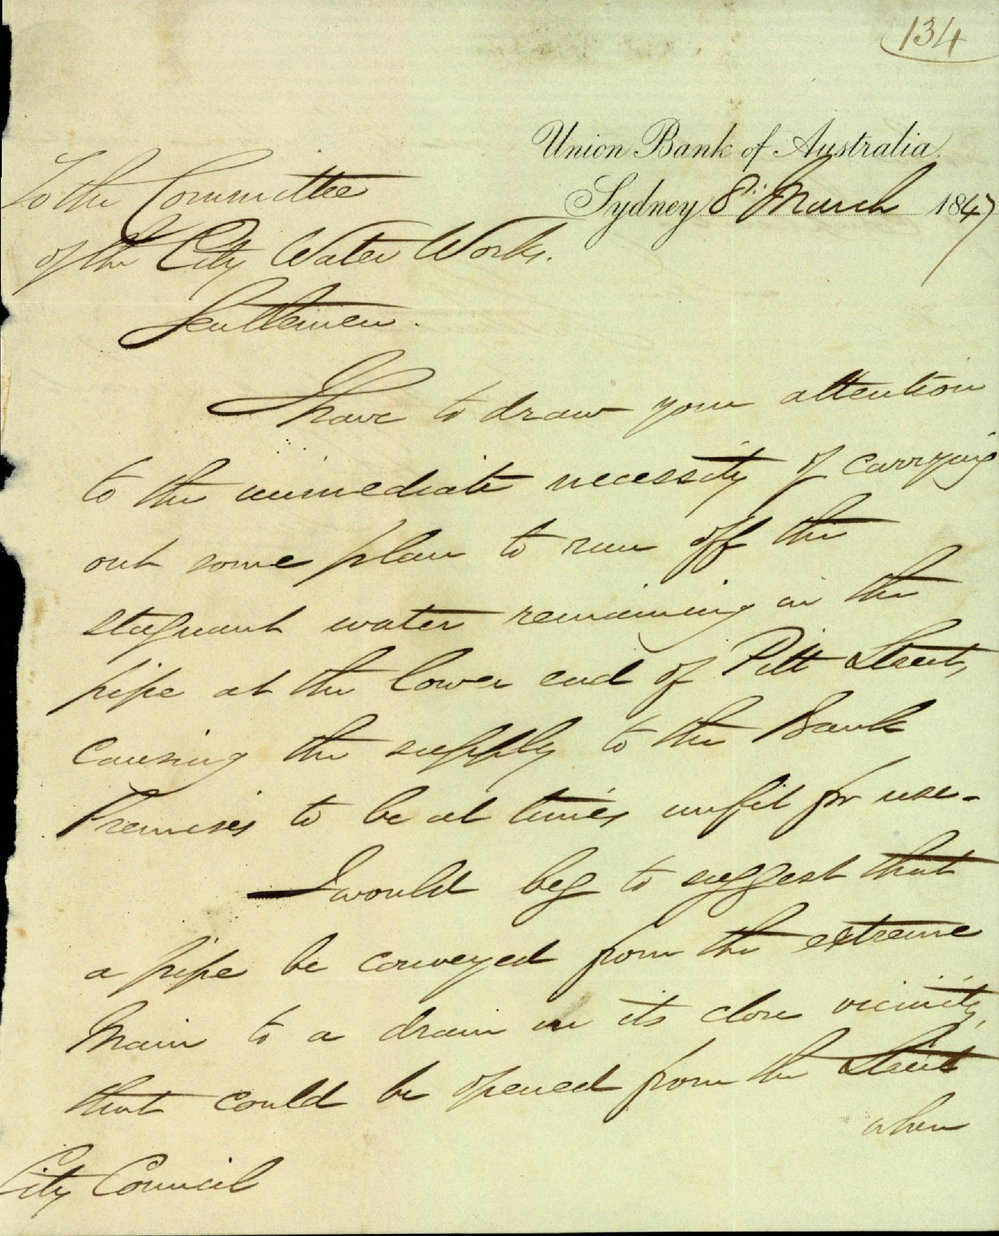 134
Union Bank of Australia
Sydney 8th March 1847
To the Committee
of the City Water Works.
Gentlemen.
I have to draw your attention
to the immediate necessity of carrying
out some plan to run off the
stagnant water remaining in the
pipe at the lower end of Pitt Street,
causing the supply to the Bank
Premises to be at times unfit for use -
I would beg to suggest that
a pipe be conveyed from the extreme
Main to a drain in its close vicinity,
that could be opened from the Street
when
City Council